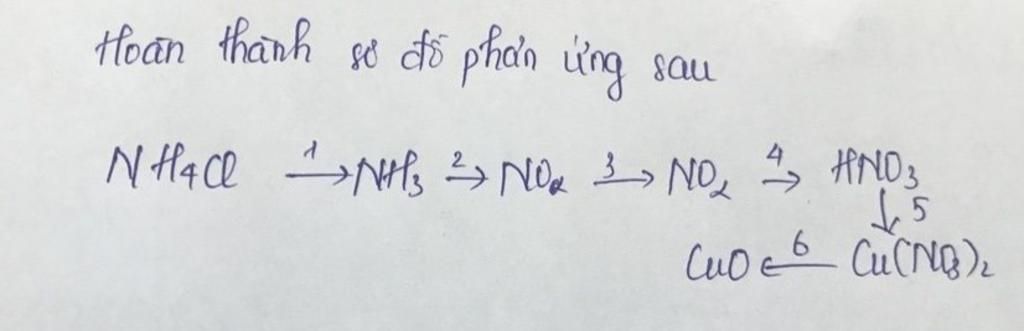 Hoàn thành sơ đồ phản ứng sau
NH4Cl 1→ NH3 2→ NO2 3→ NO2 4→ HNO3
↓ 5
CuO ←6 Cu(NO3)2